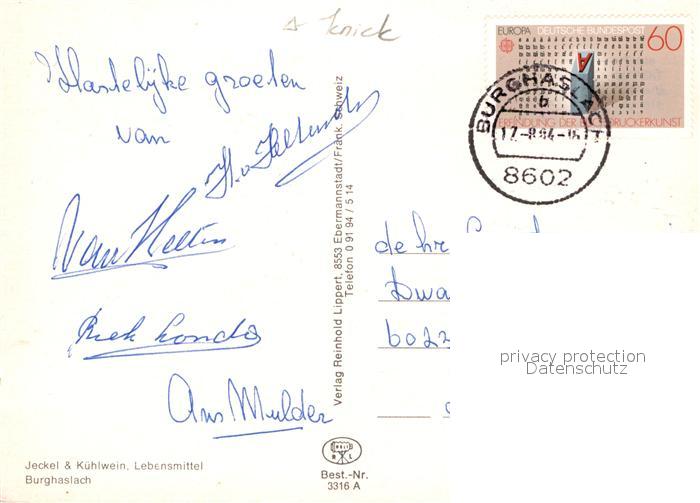 knick
Hartelijke groeten
van
Van Helten
Riek Londo
Ans Mulder
Jeckel & Kühlwein, Lebensmittel
Burghaslach
Verlag Reinhold Lippert, 8553 Ebermannstadt/Fränk. Schweiz
Telefon 0 91 94 / 5 14
Best.-Nr.
3316 A
EUROPA DEUTSCHE BUNDESPOST 60
ERFINDUNG DER DRUCKERKUNST
BURGHASLACH
b
17.-8.84-16
8602
de hr
Dwa
privacy protection
Datenschutz